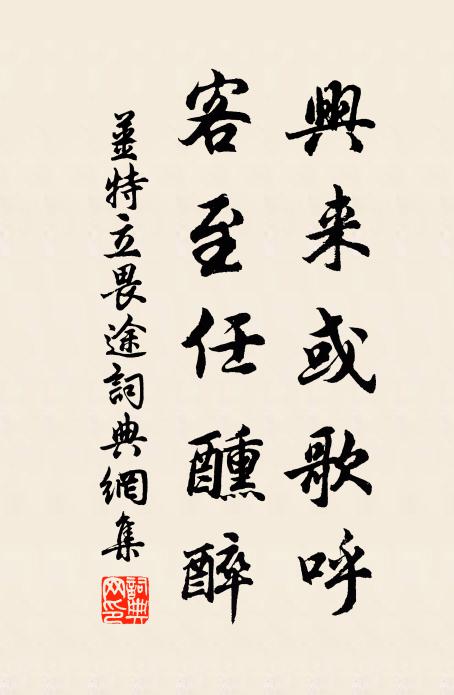 興来或歌呼
客至任醺醉
姜特立畏途詞典網集
詞典網印